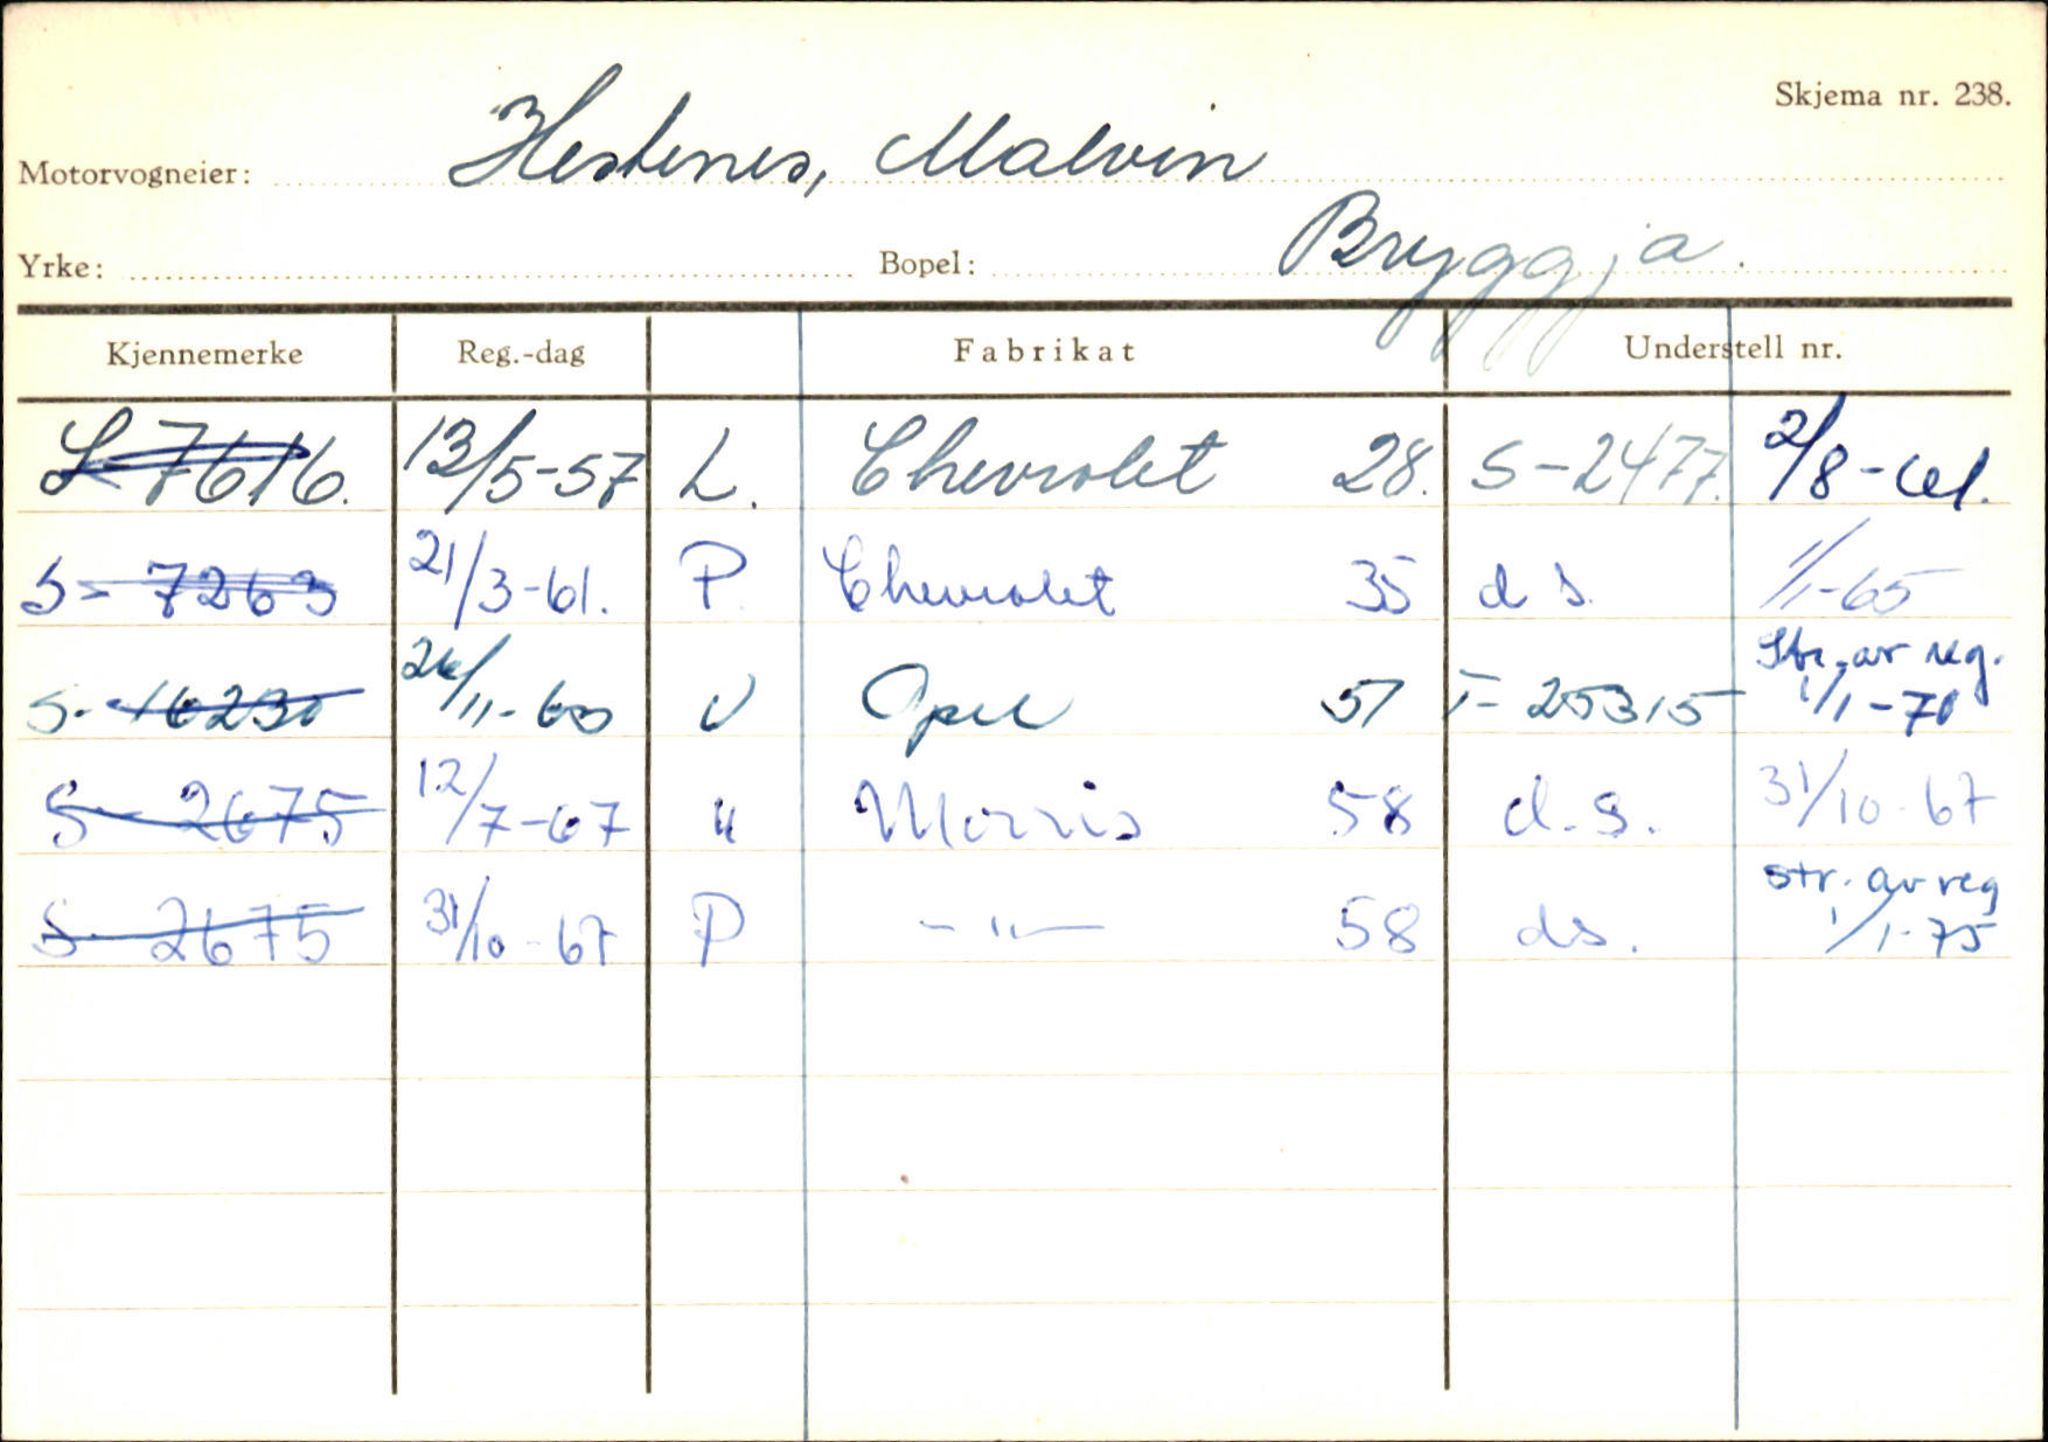 Skjema nr. 238.
Motorvogneier: Hestenes, Malvin
Yrke: Bopel: Bryggja.
Kjennemerke Reg.-dag Fabrikat Understell nr.
S 7616. 13/5-57 L. Chevrolet 28. S-2477. 2/8-61.
S- 7263 21/3-61. P. Chevrolet 35 d s. 1/1-65
S- 16230 V Opel 51 T-25315 Str. av reg.
1/1-70
S- 2675 12/7-67 " Morris 58 d.s. 31/10-67
S- 2675 31/10-67 P -"- 58 ds. str. av reg
1/1-75